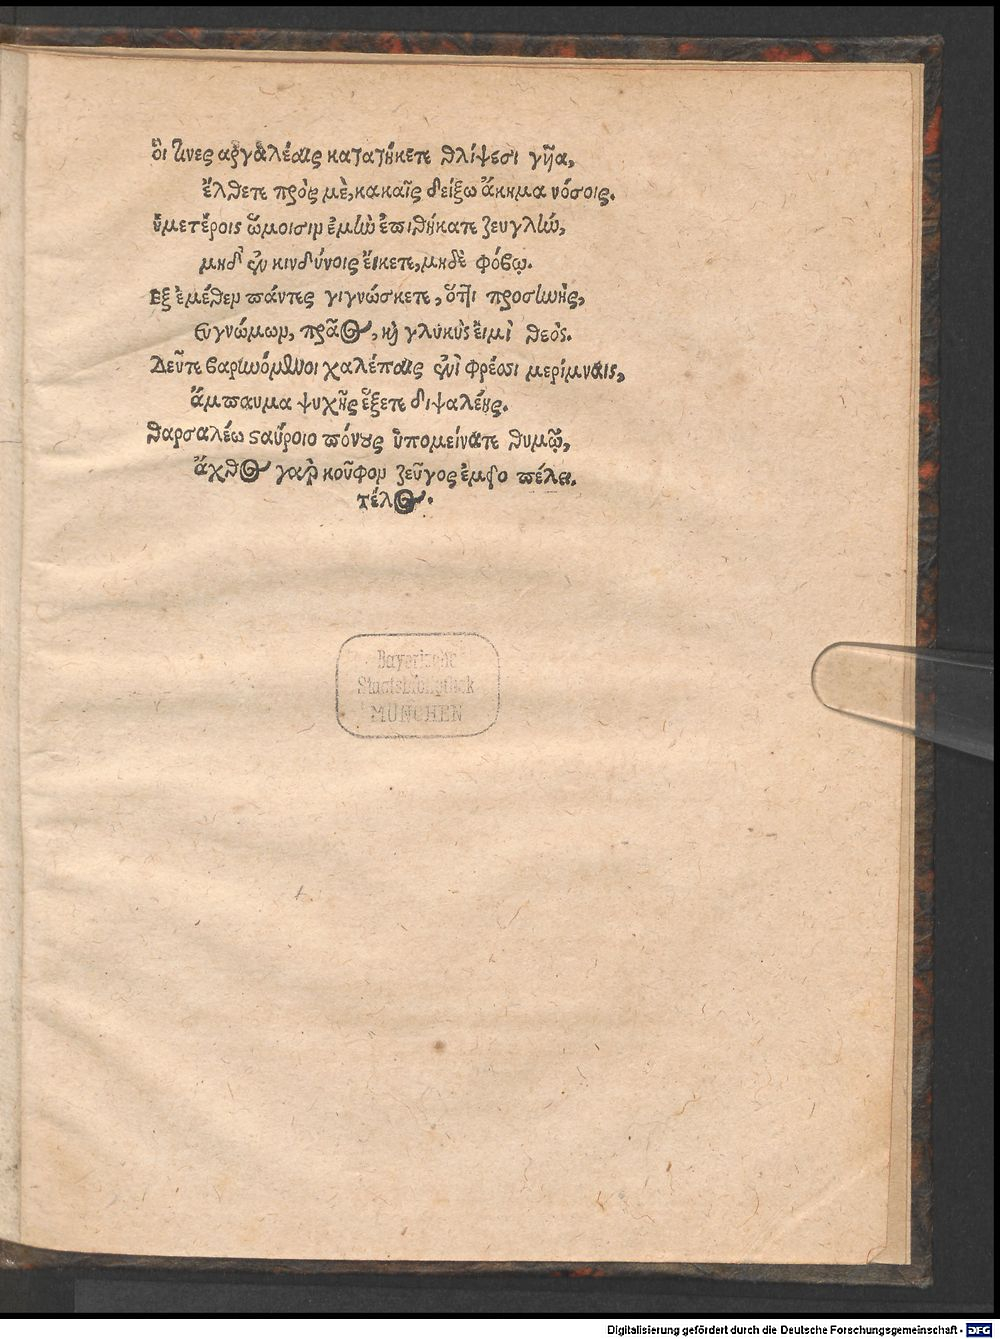 ὅι τινες ἀργαλέαις κατατήκετε θλίψεσι γῆα,
ἔλθετε πρὸς μὲ, κακαῖς δείξω ἄκημα νόσοις.
ὑμετέροις ὤμοισιν ἐμὴν ἐπιθήκατε ζευγλὴν,
μηδ' ἐν κινδύνοις ἔικετε, μηδὲ φόβῳ.
Εξ ἐμέθεν πάντες γιγνώσκετε, ὅττι προσηνὴς,
Ευγνώμων, πρᾶος, καὶ γλυκὺς εἰμὶ θεὸς.
Δεῦτε βαρυνόμενοι χαλέπαις ἐνὶ φρέσσι μερίμναις,
ἄμπαυμα ψυχῆς ἕξετε διψαλέης.
θαρσαλέω σταύροιο πόνους ὑπομείνατε θυμῷ,
ἄχθος γὰρ κοῦφον ζεῦγος πέλει.
τέλος.
Bayerische
Staatsbibliothek
MÜNCHEN
Digitalisierung gefördert durch die Deutsche Forschungsgemeinschaft - DFG